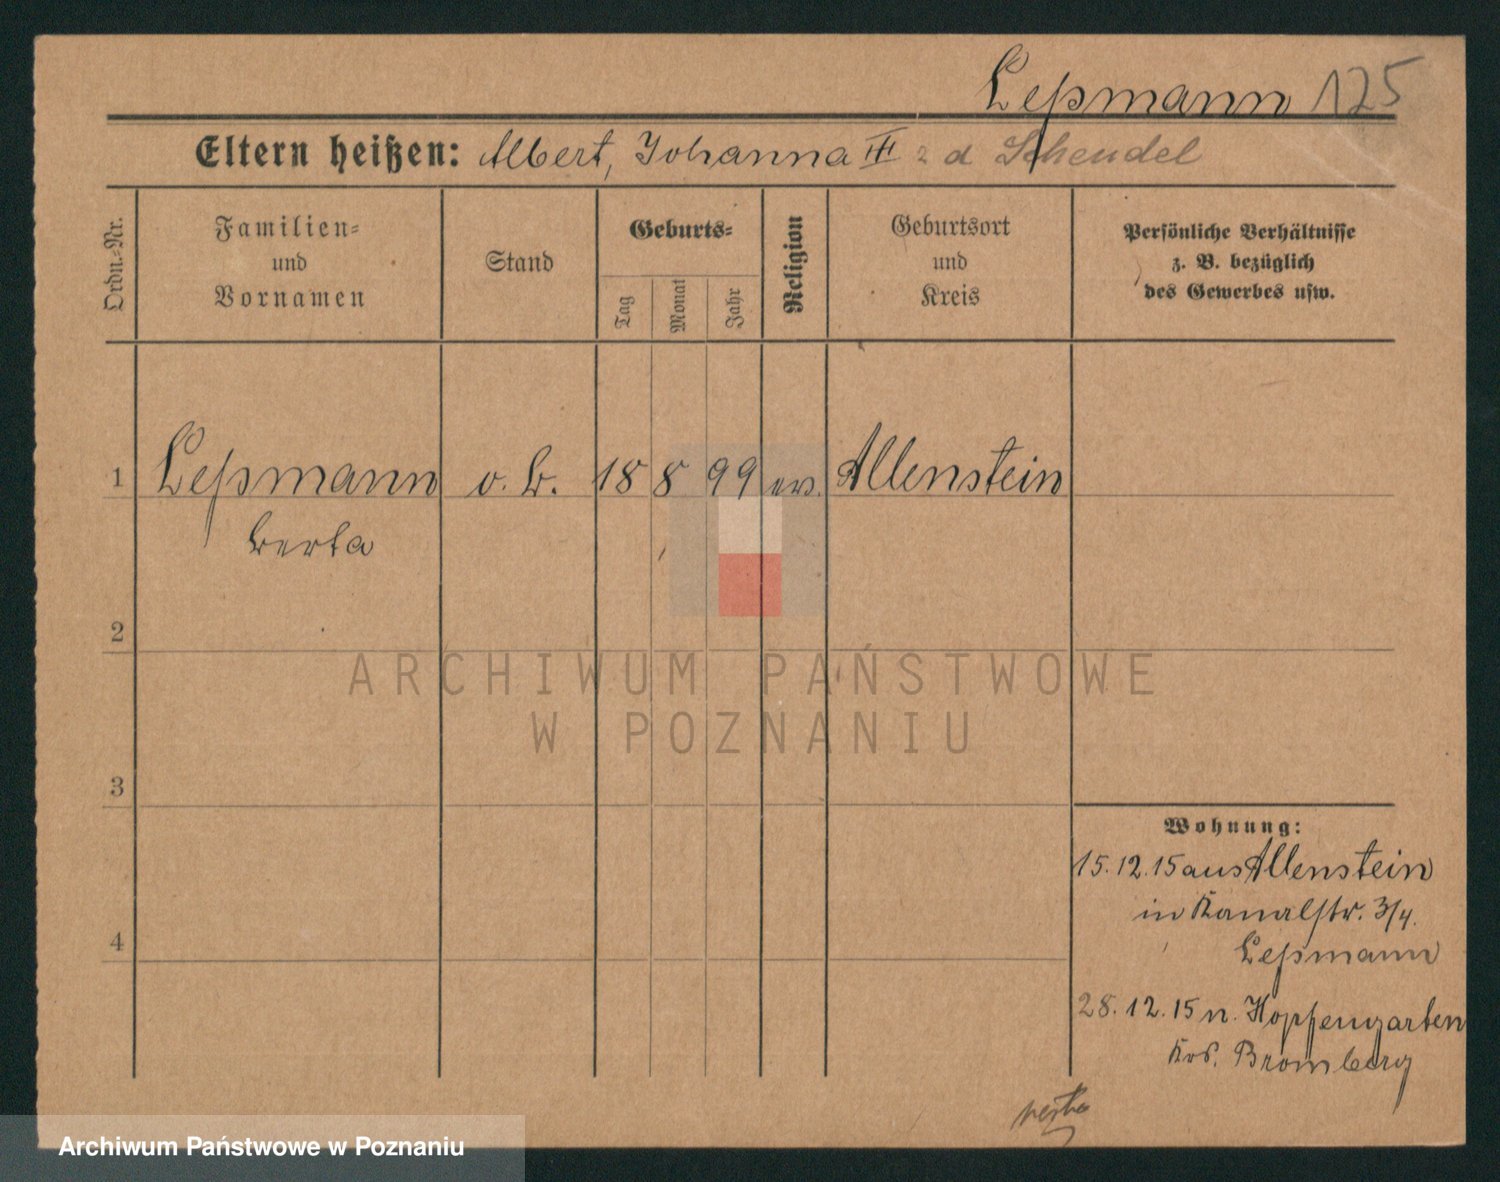 Leßmann 175
Eltern heißen: Albert, Johanna III z d Schendel
Ordn.-Nr.
Familien-
und
Vornamen
Stand
Geburts-
Tag
Monat
Jahr
Religion
Geburtsort
und
Kreis
Persönliche Verhältnisse
z. B. bezüglich
des Gewerbes usw.
1 Leßmann o. B. 18 8 99 ev. Allenstein
Berta
2
3
4
Wohnung:
15. 12. 15 aus Allenstein
in Kanalstr. 3/4.
Leßmann
28. 12. 15 n. Hopfengarten
Krs. Bromberg
ARCHIWUM PAŃSTWOWE
W POZNANIU
Archiwum Państwowe w Poznaniu